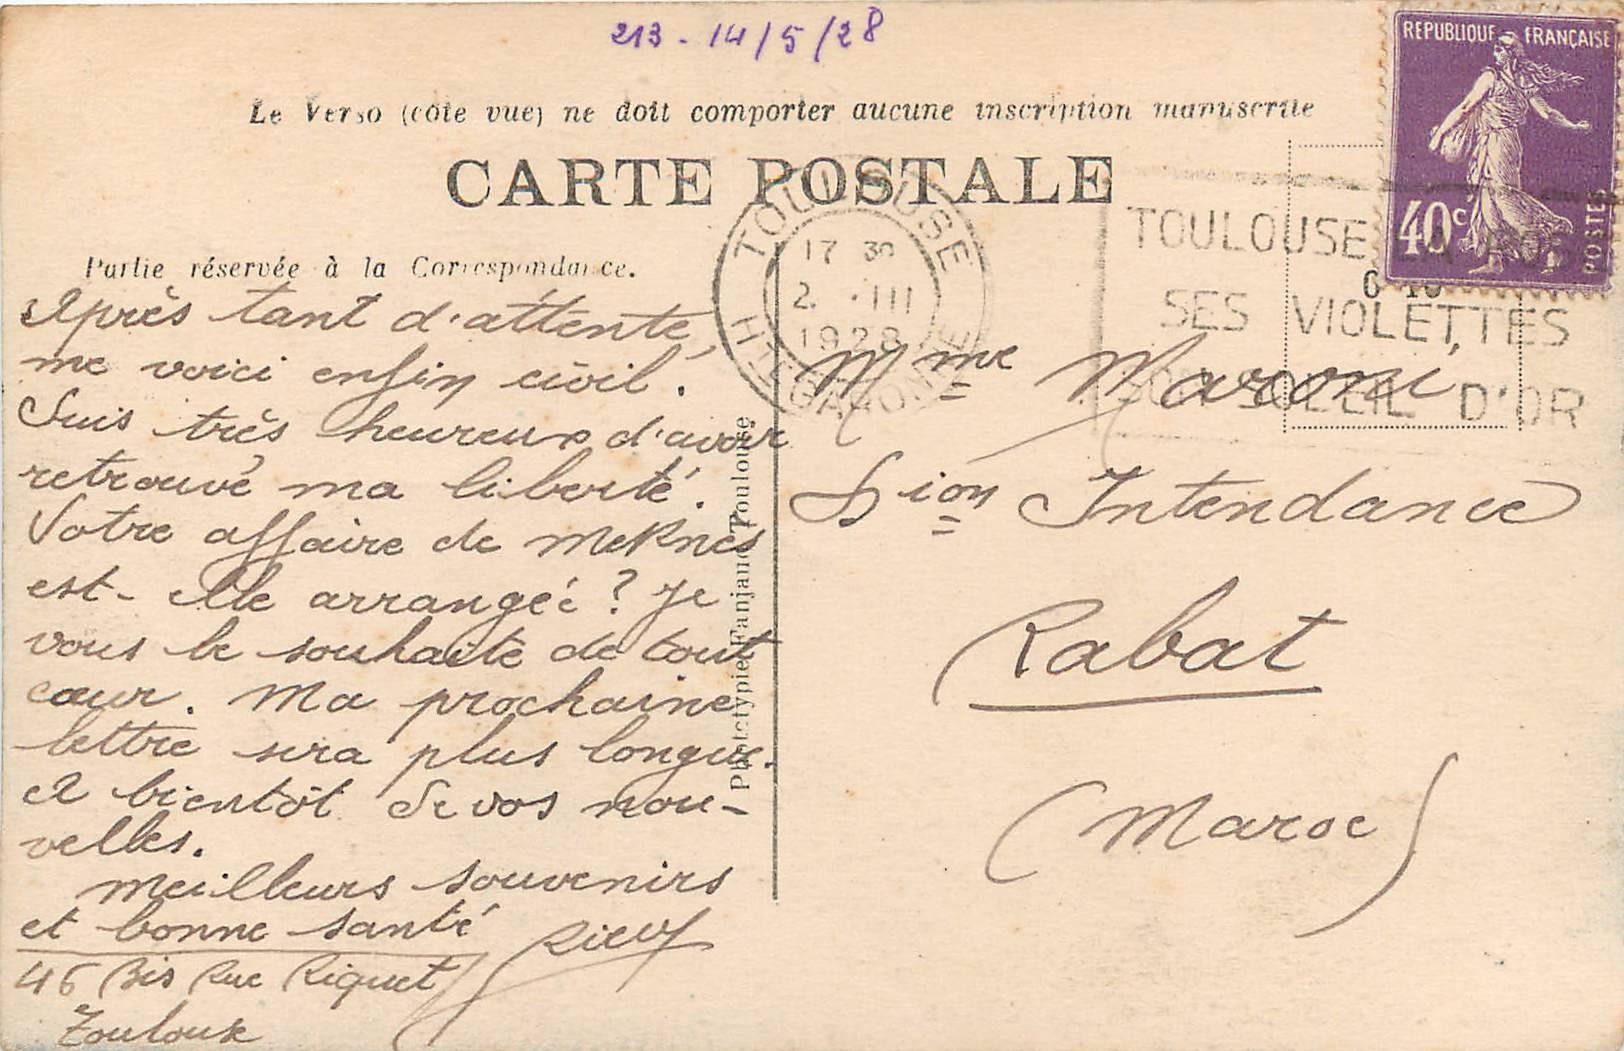 213 - 14/5/28
REPUBLIQUE FRANÇAISE
40c
POSTES
Le Verso (côté vue) ne doit comporter aucune inscription manuscrite
CARTE POSTALE
TOULOUSE
17 30
2. III
1928
HTE GARONNE
TOULOUSE
SES VIOLETTES
SON SOLEIL D'OR
Partie réservée à la Correspondance.
Après tant d'attente,
me voici enfin civil.
Suis très heureux d'avoir
retrouvé ma liberté.
Votre affaire de Meknès
est-elle arrangée ? Je
vous le souhaite de tout
cœur. Ma prochaine
lettre sera plus longue.
A bientôt de vos nou-
velles.
Meilleurs souvenirs
et bonne santé
46 Bis Rue Riquet
Toulouse
Phototypie Fanjaud Toulouse
Mme Maroni,
Dion Intendance
Rabat
(Maroc)